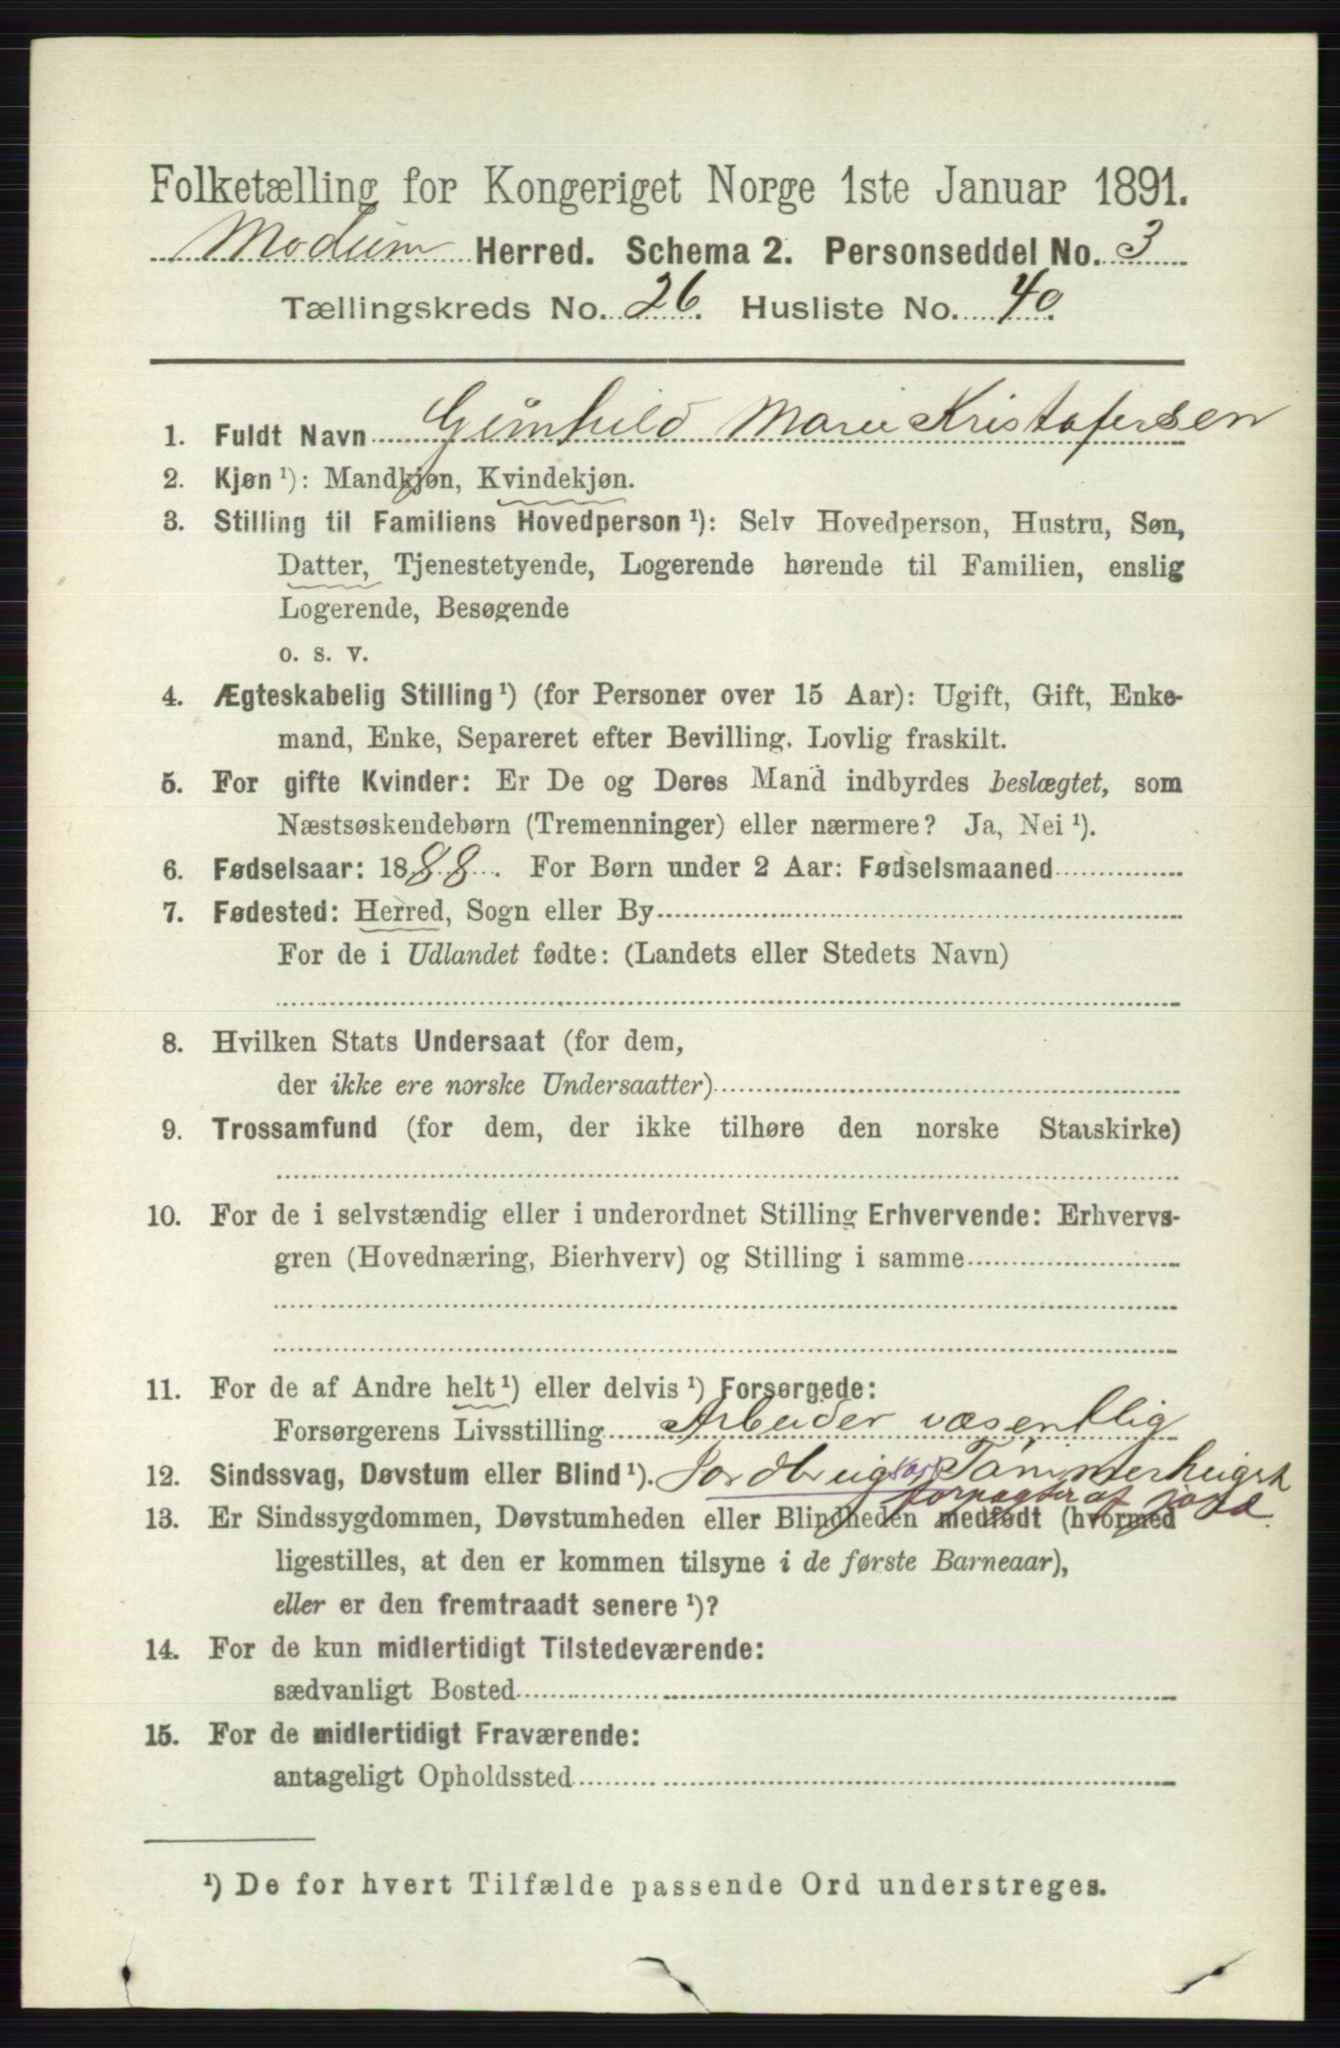 Folketælling for Kongeriget Norge 1ste Januar 1891.
Modum Herred. Schema 2. Personseddel No. 3
Tællingskreds No. 26. Husliste No. 40.
1. Fuldt Navn Gunhild Marie Kristofersen
2. Kjøn ¹): Mandkjøn, Kvindekjøn.
3. Stilling til Familiens Hovedperson ¹): Selv Hovedperson, Hustru, Søn,
Datter, Tjenestetyende, Logerende hørende til Familien, enslig
Logerende, Besøgende
o. s. v.
4. Ægteskabelig Stilling ¹) (for Personer over 15 Aar): Ugift, Gift, Enke-
mand, Enke, Separeret efter Bevilling. Lovlig fraskilt.
5. For gifte Kvinder: Er De og Deres Mand indbyrdes beslægtet, som
Næstsøskendebørn (Tremenninger) eller nærmere? Ja, Nei ¹).
6. Fødselsaar: 1888. For Børn under 2 Aar: Fødselsmaaned
7. Fødested: Herred, Sogn eller By
For de i Udlandet fødte: (Landets eller Stedets Navn)
8. Hvilken Stats Undersaat (for dem,
der ikke ere norske Undersaatter)
9. Trossamfund (for dem, der ikke tilhøre den norske Statskirke)
10. For de i selvstændig eller i underordnet Stilling Erhvervende: Erhvervs-
gren (Hovednæring, Bierhverv) og Stilling i samme
11. For de af Andre helt ¹) eller delvis ¹) Forsørgede:
Forsørgerens Livsstilling Arbeider væsentlig
12. Sindssvag, Døvstum eller Blind ¹). Jordbrug Tømmerhugst
forpagter af jord
13. Er Sindssygdommen, Døvstumheden eller Blindheden medfødt (hvormed
ligestilles, at den er kommen tilsyne i de første Barneaar),
eller er den fremtraadt senere ¹)?
14. For de kun midlertidigt Tilstedeværende:
sædvanligt Bosted
15. For de midlertidigt Fraværende:
antageligt Opholdssted
¹) De for hvert Tilfælde passende Ord understreges.